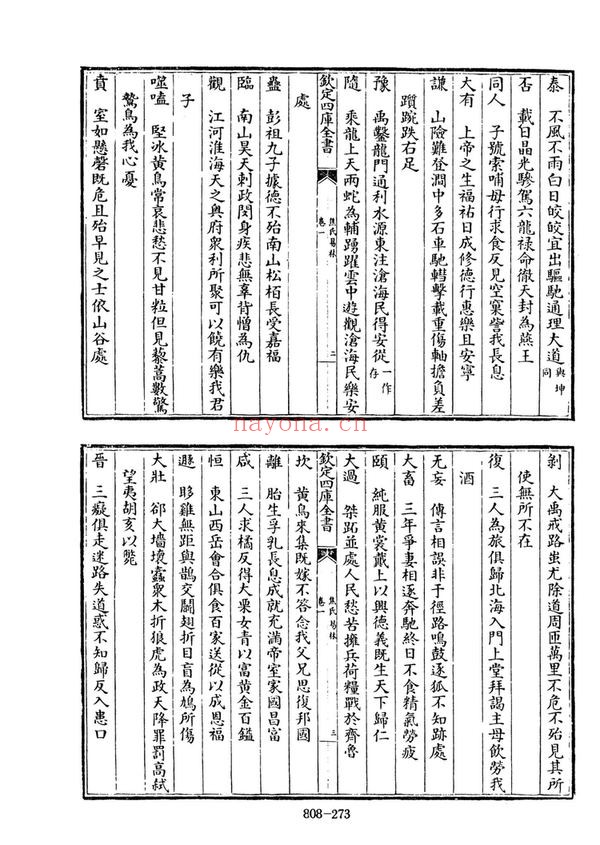 泰　不風不雨白日皎皎宜出驅馳通理大道與坤同
否　載日晶光驂駕六龍祿命徹天封為燕王
同人　子號索哺母行求食反見空窠訾我長息
大有　上帝之生福祐日成修德行惠樂且安寧
謙　山險難登澗中多石車馳轊擊載重傷軸擔負差
躓踠跌右足
豫　禹鑿龍門通利水源東注滄海民得安從一作存
隨　乘龍上天兩蛇為輔踴躍雲中遊觀滄海民樂安
處
欽定四庫全書
焦氏易林
卷一
二
蠱　彭祖九子據德不殆南山松栢長受嘉福
臨　南山昊天刺政閔身疾悲無辜背憎為仇
觀　江河淮海天之奥府衆利所聚可以饒有樂我君
子
噬嗑　堅冰黄鳥常哀悲愁不見甘粒但見藜蒿數驚
鷙鳥為我心憂
賁　室如懸磬既危且殆早見之士依山谷處
剝　大禹戒路蚩尤除道周匝萬里不危不殆見其所
使無所不在
復　三人為旅俱歸北海入門上堂拜謁主母飲勞我
酒
无妄　傳言相誤非于徑路鳴鼓逐狐不知跡處
大畜　三年爭妻相逐奔馳終日不食精氣勞疲
頤　純服黄裳戴上以興德義既生天下歸仁
大過　桀跖並處人民愁苦擁兵荷糧戰於齊魯
欽定四庫全書
焦氏易林
卷一
三
坎　黄鳥來集既嫁不答念我父兄思復邦國
離　胎生孚乳長息成就充滿帝室家國昌富
咸　三人求橘反得大栗女青以富黄金百鎰
恒　東山西岳會合俱食百家送從以成恩福
遯　䀢雞無距與鵲交鬭翅折目盲為鳩所傷
大壯　郤大墻壞蠹衆木折狼虎為政天降罪罰高弑
望夷胡亥以斃
晉　三癡俱走迷路失道惑不知歸反入患口
808-273
nayona.cn